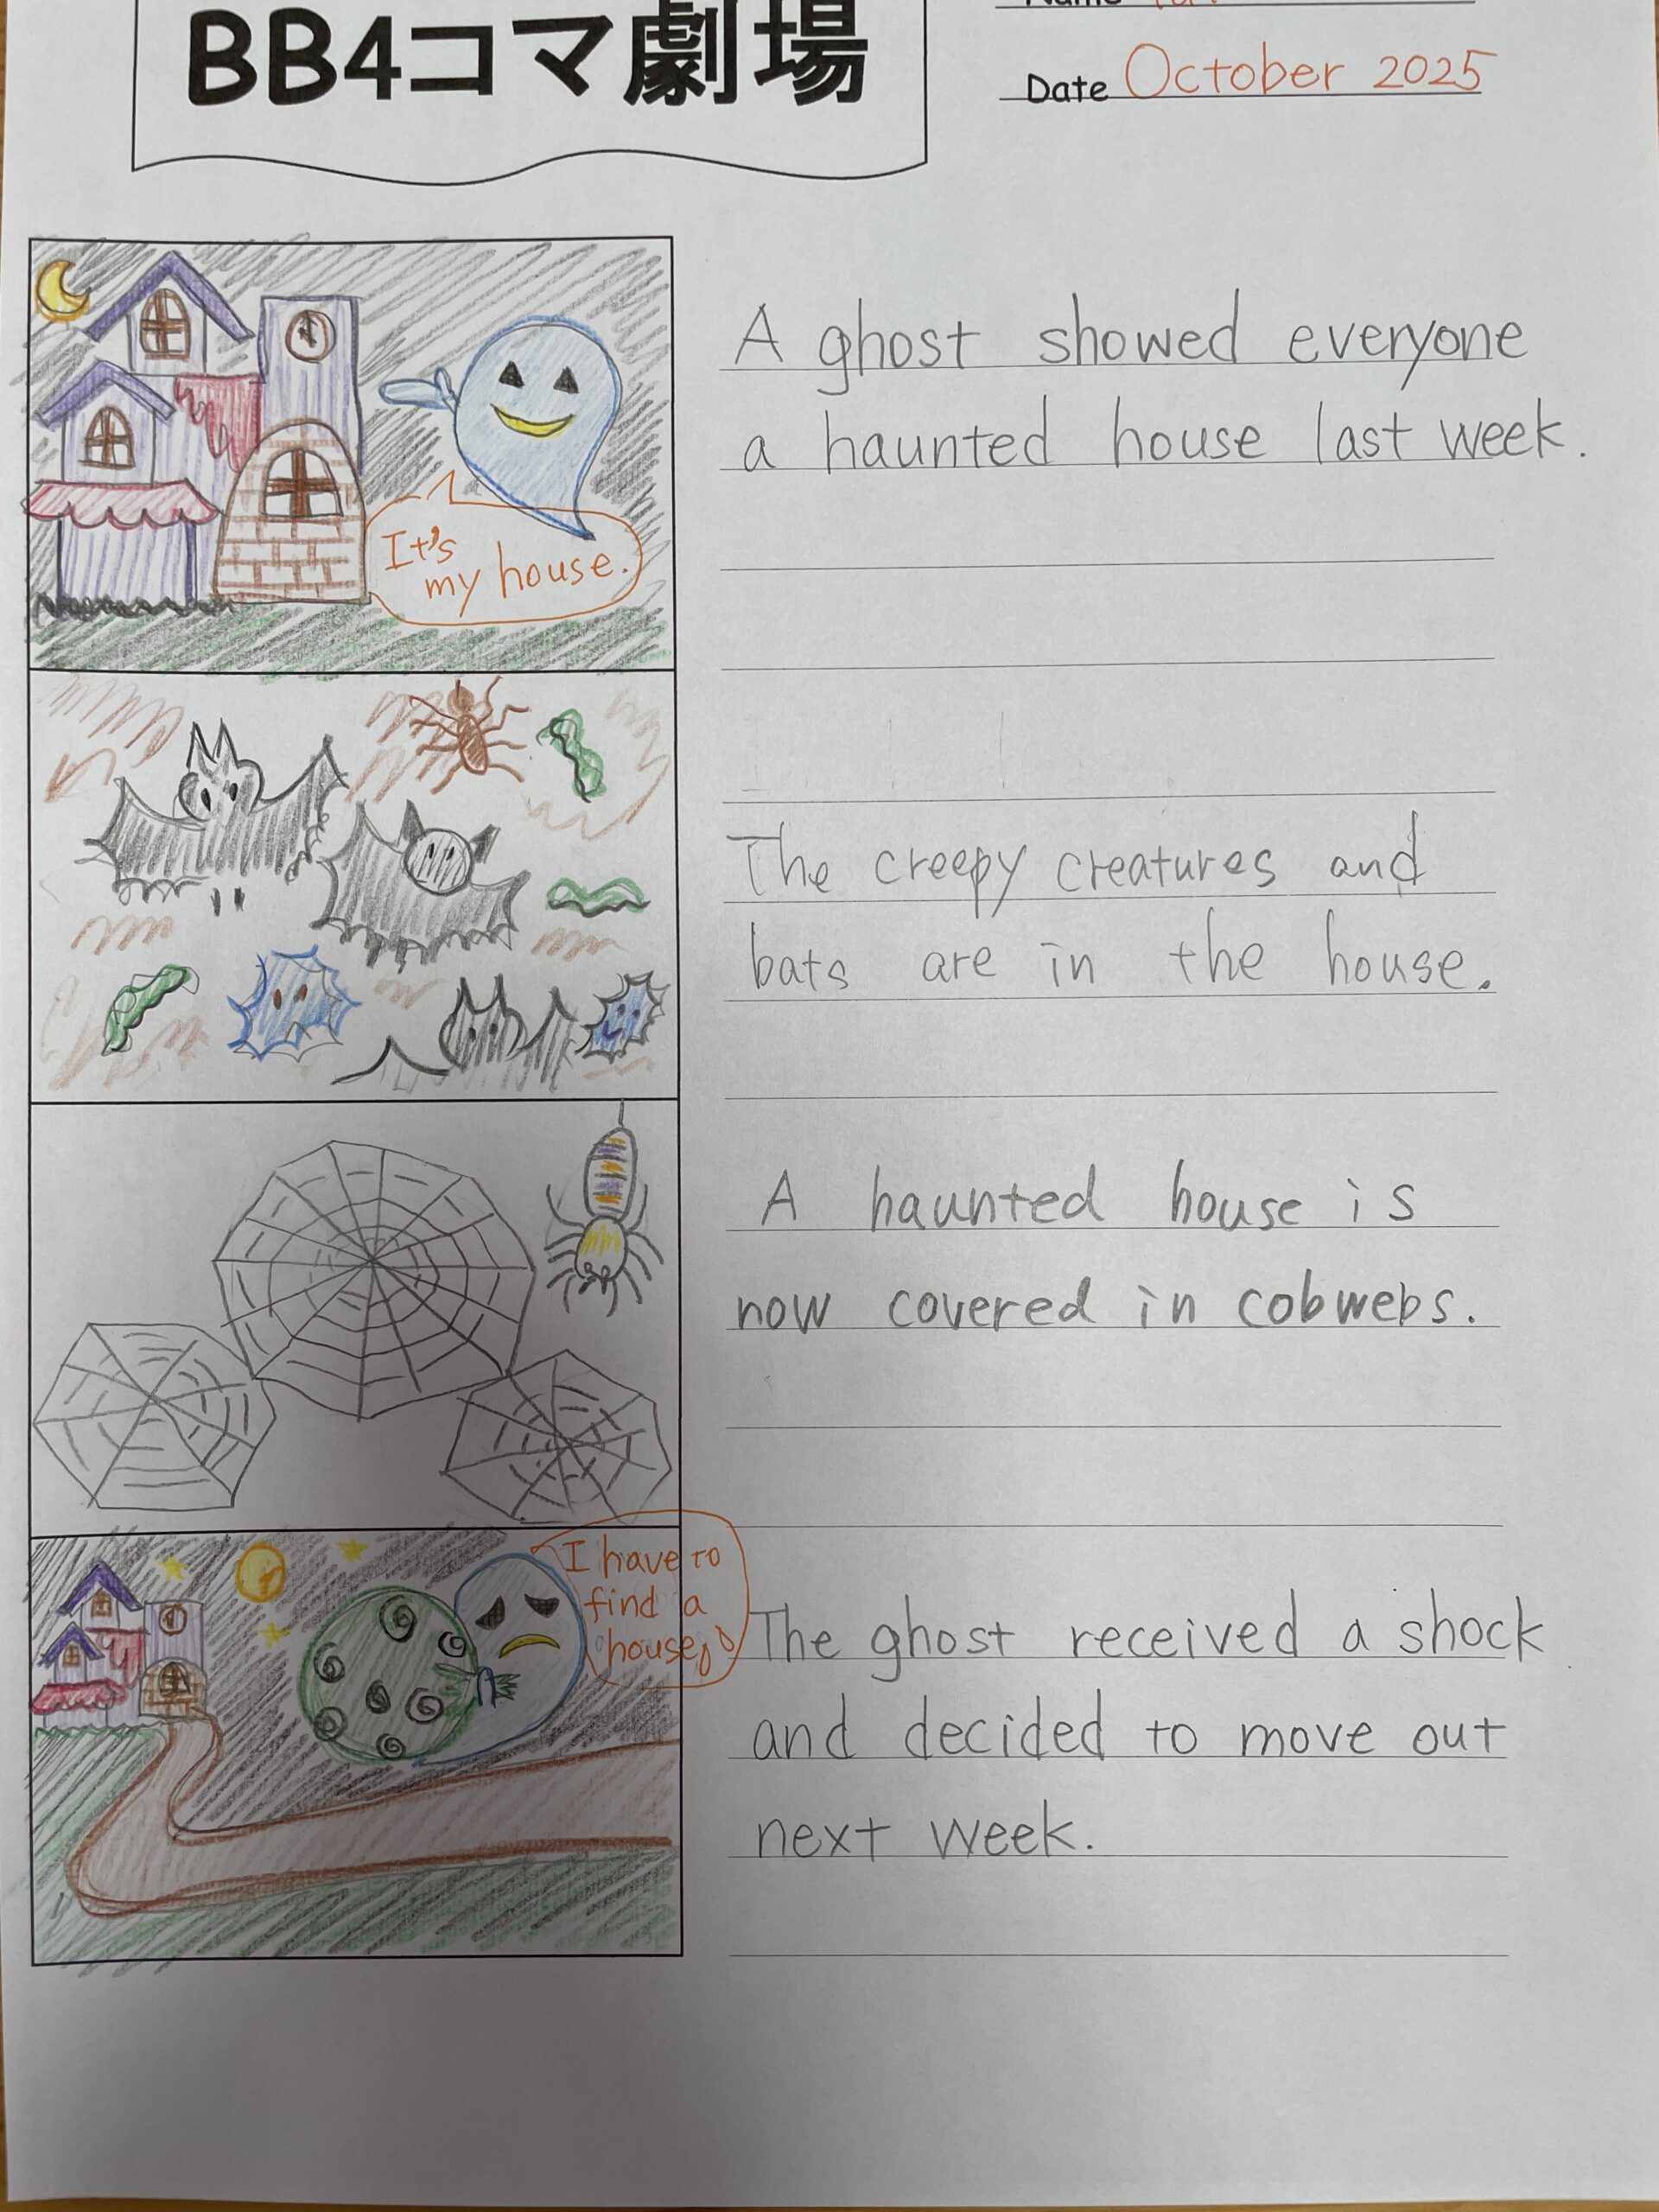 BB4コマ劇場
Name
Date October 2025
It's
my house.
A ghost showed everyone
a haunted house last week.
The creepy creatures and
bats are in the house.
A haunted house is
now covered in cobwebs.
I have to
find a
house
The ghost received a shock
and decided to move out
next week.